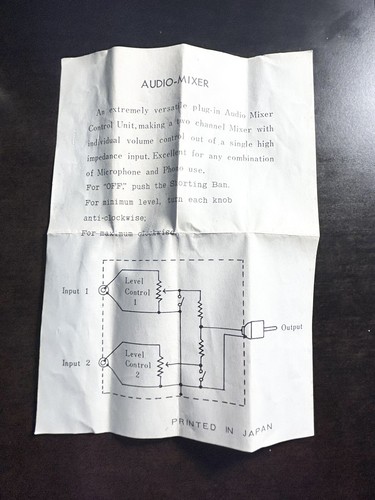 AUDIO-MIXER
An extremely versatile plug-in Audio Mixer
Control Unit, making a two channel Mixer with
individual volume control out of a single high
impedance input. Excellent for any combination
of Microphone and Phono use.
For "OFF," push the Shorting Ban.
For minimum level, turn each knob
anti-clockwise;
For maximum clockwise.
Input 1
Level
Control
1
Output
Input 2
Level
Control
2
PRINTED IN JAPAN